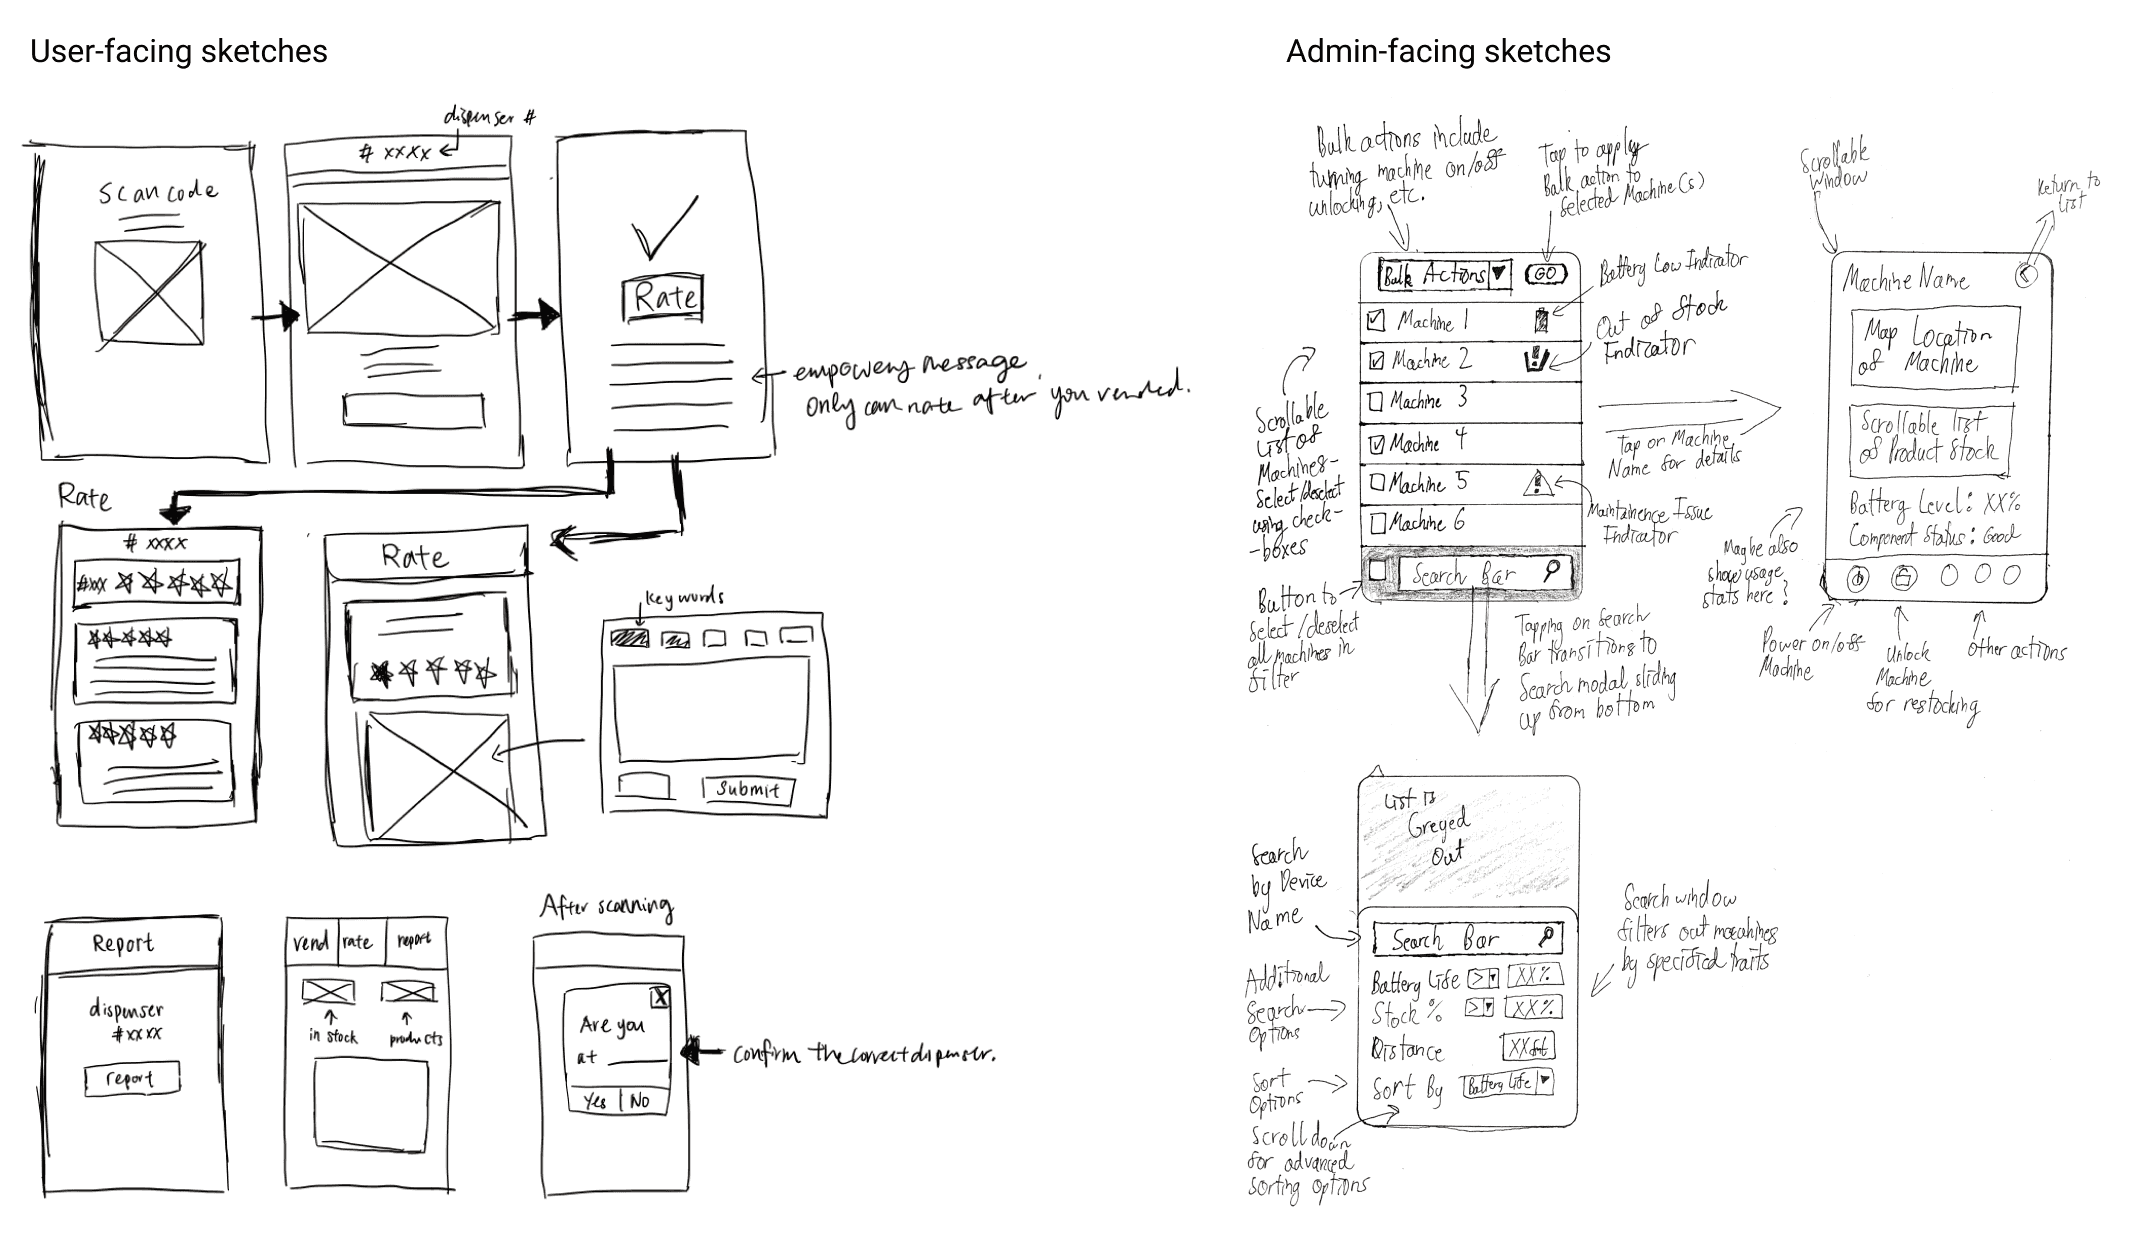 User-facing sketches
dispenser #
Scan code
# xxxx
Rate
empowery message
Only can rate after you vended.
Rate
# xxxx
#xxx
Rate
keywords
Submit
Report
dispenser
#xxxx
report
vend
rate
report
in stock
products
After scanning
Are you
at
Yes
No
Confirm the correct dispenser.
Admin-facing sketches
Bulk actions include
turning machine on/off
unlocking, etc.
Tap to apply
Bulk action to
Selected Machine(s)
Bulk Actions
GO
Battery Low Indicator
Machine 1
Out of Stock
Indicator
Machine 2
Machine 3
Machine 4
Machine 5
Machine 6
Maintainence Issue
Indicator
Search Bar
Scrollable
List of
Machines-
Select/deselect
using check-
-boxes
Button to
Select/deselect
all machines in
filter
Tap on Machine
Name for details
Tapping on Search
Bar transitions to
Search modal sliding
up from bottom
Scrollable
Window
Return to
List
Machine Name
Map Location
of Machine
Scrollable list
of Product Stock
Battery Level: XX%
Component Status: Good
Maybe also
show usage
stats here?
Power on/off
Machine
Unlock
Machine
for restocking
Other actions
List Is
Greyed
Out
Search
by Device
Name
Search Bar
Additional
Search
Options
Battery Life > XX%
Stock % > XX%
Distance XXft
Sort By Battery Life
Sort
Options
Scroll down
for advanced
Sorting options
Search window
filters out macahines
by specified traits